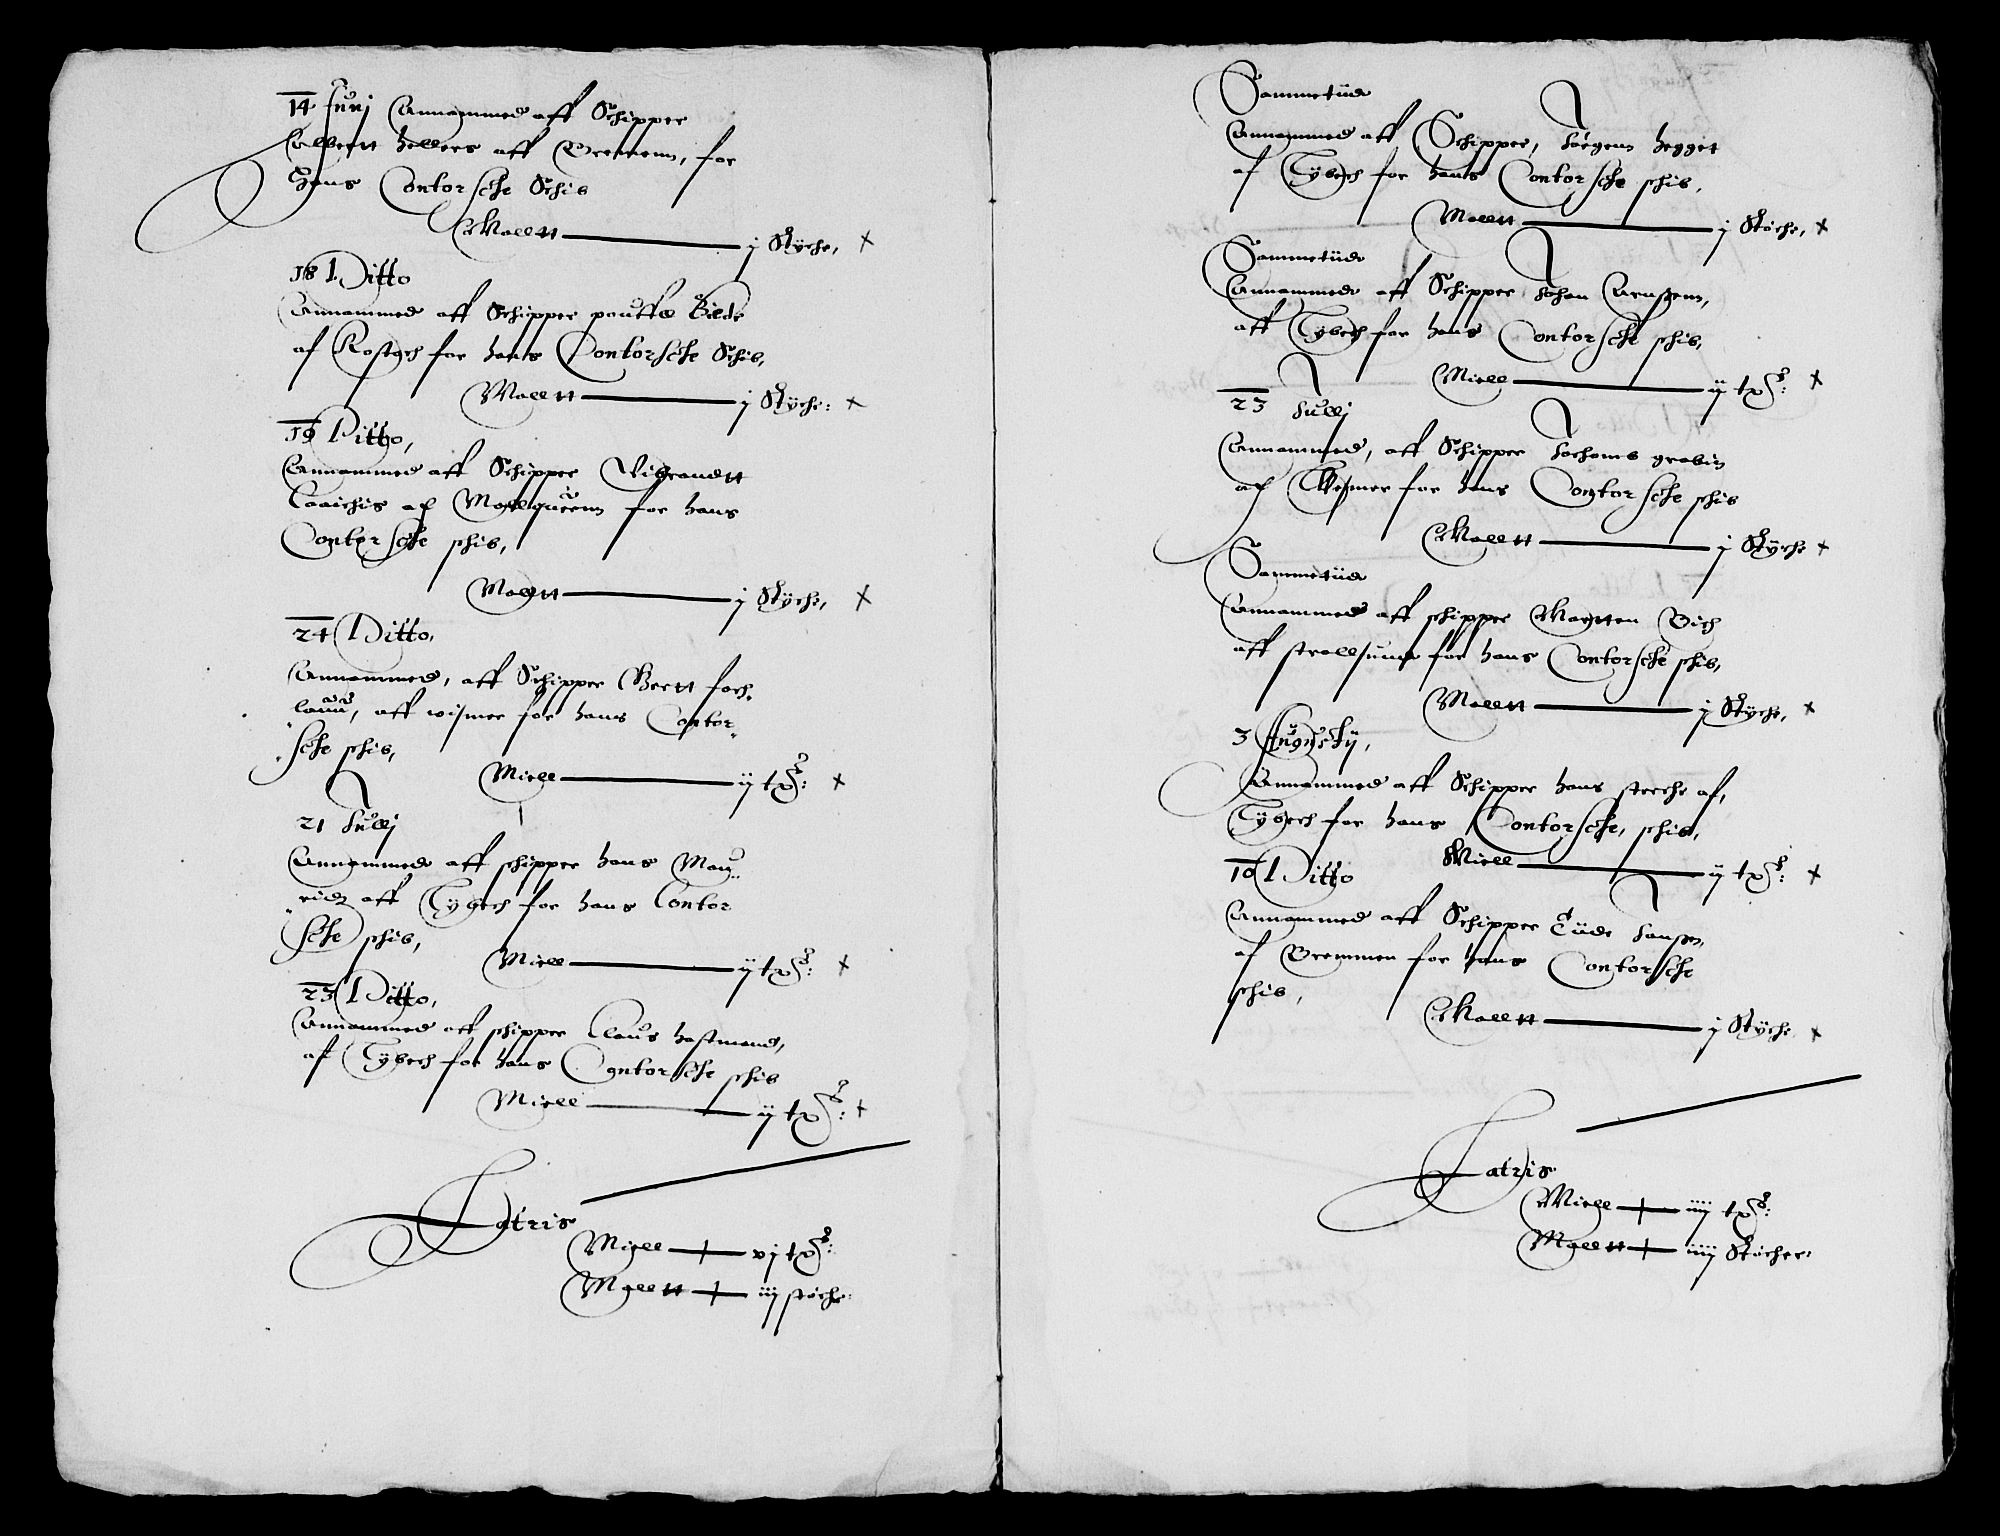 14 Junj Annammed aff Schipper
Albertt Hellers aff Bremenn, for
Hans Contorsche Schib
Maelltt j Støche, +
18 Ditto
Annammed aff Schipper pouffel Bilde
af Rostoch for hans Contorsche Schib,
Maelltt j Støche: +
19 Ditto,
Annammed aff Schipper Vibrandtt
af for hans
Contorsche schib,
Maelltt j Støche, +
24 Ditto,
Annammed, aff Schipper Gertt
aff wismer for hans Contor„
„sche schib,
Miell ij tdr: +
21 Julij
Annammed aff schipper hans Mau„
„ridz aff Lybech for hans Contor
sche schib,
Miell ij tdr: +
23 Ditto,
Annammed aff schipper Claus hastmand,
aff Lybech for hans Contorsche schib
Miell ij tdr: +
Latris
Miell vj tdr:
Maelltt iij støche:
Sammetiid
Annammed aff Schipper, Jørgenn Hegget
af Lybech for hans Contorsche schib,
Maelltt j Støche, +
Sammetiid
Annammed aff Schipper Johan Arnszenn,
aff Lybech for hans Contorsche schib,
Miell ij tdr: +
23 Julij
Annammed, aff Schipper Jochoms grabin
af Wismer for hans Contorsche schib
Maelltt j Støche +
Sammetiid
Annammed aff schipper Martten Bich
aff strallsund for hans Contorsche schib,
Maelltt j Støche, +
3 Augustij,
Annammed aff Schipper hans sterche af,
Lybech for hans Contorsche, schib,
Miell ij tdr: +
10 Ditto
Annammed aff Schipper Lüder Janszen,
af Bremmen for hans Contorsche
schib,
Maelltt j Støche +
Latris
Miell iiij tdr:
Maelltt iiij Støcher: